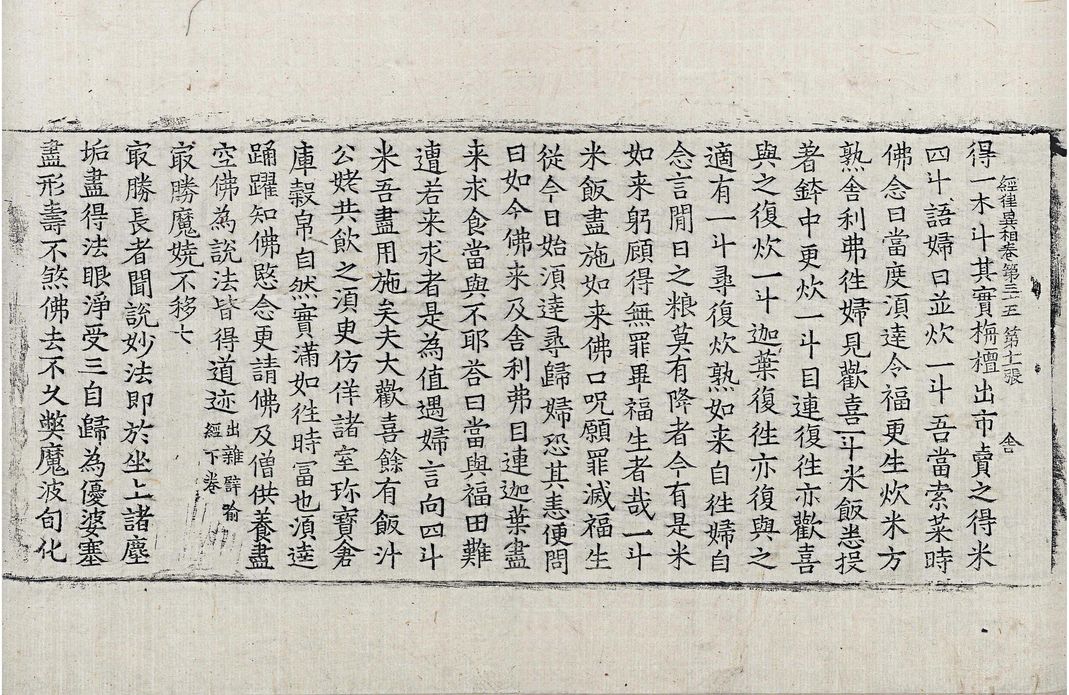 經律異相卷第三十五 第十一張 舍
得一木斗其實栴檀出市賣之得米
四斗語婦曰並炊一斗吾當索菜時
佛念曰當度湏達令福更生炊米方
熟舍利弗徃婦見歡喜一斗米飯悉投
著鉢中更炊一斗目連復徃亦歡喜
與之復炊一斗迦葉復徃亦復與之
適有一斗尋復炊熟如来自徃婦自
念言間日之粮莫有降者今有是米
如来躬顧得無罪畢福生者哉一斗
米飯盡施如来佛口呪願罪滅福生
從今日始湏達尋歸婦恐其恚便問
曰如今佛来及舍利弗目連迦葉盡
来求食當與不耶荅曰當與福田難
遭若来求者是為值遇婦言向四斗
米吾盡用施矣夫大歡喜餘有飯汁
公姥共飲之湏臾仿佯諸室珎寶倉
庫榖帛自然實滿如徃時冨也湏逹
踊躍知佛愍念更請佛及僧供養盡
空佛為說法皆得道迹出雜譬喻經下卷
㝡勝魔嬈不移七
㝡勝長者聞說妙法即於坐上諸塵
垢盡得法眼淨受三自歸為優婆塞
盡形壽不煞佛去不久獘魔波旬化